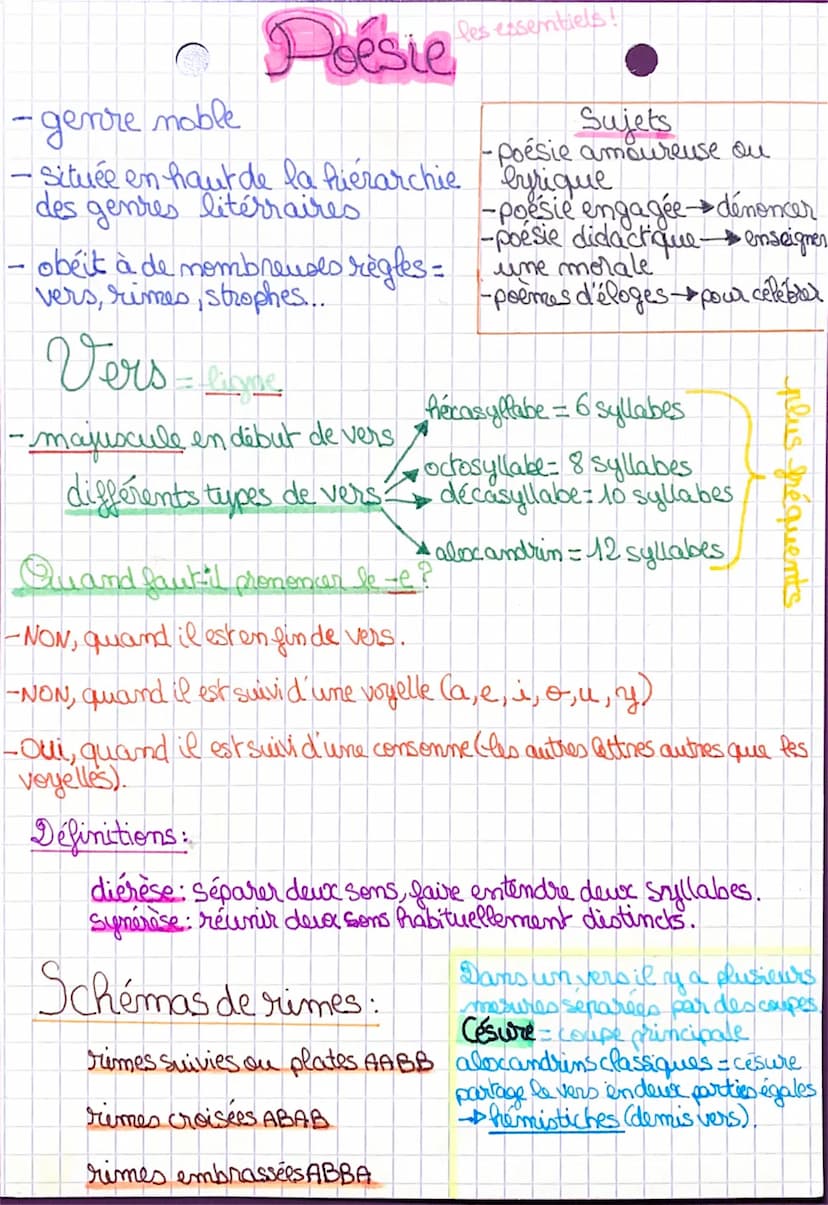 Poésie les essentiels!
- genre noble
- située en haut de la hiérarchie
des genres litérraires
- obéit à de nombreuses règles =
vers, rimes, strophes...
Sujets
- poésie amoureuse ou
lyrique
- poésie engagée → dénoncer
- poésie didactique → enseigner
une morale
- poèmes d'éloges → pour célébrer
Vers = ligne
- majuscule en début de vers
différents types de vers:
héxasyllabe = 6 syllabes
octosyllabe = 8 syllabes
décasyllabe = 10 syllabes
alexandrin = 12 syllabes
plus fréquents
Quand faut-il prononcer le -e?
- NON, quand il est en fin de vers.
- NON, quand il est suivi d'une voyelle (a, e, i, o, u, y)
- OUI, quand il est suivi d'une consonne (les autres lettres autres que les
voyelles).
Définitions:
diérèse: séparer deux sons, faire entendre deux syllabes.
synérèse: réunir deux sons habituellement distincts.
Schémas de rimes:
rimes suivies ou plates AABB
rimes croisées ABAB
rimes embrassées ABBA
Dans un vers il y a plusieurs
mesures séparées par des coupes
Césure = coupe principale
alexandrins classiques = césure
partage le vers en deux parties égales
→ hémistiches (demis vers).